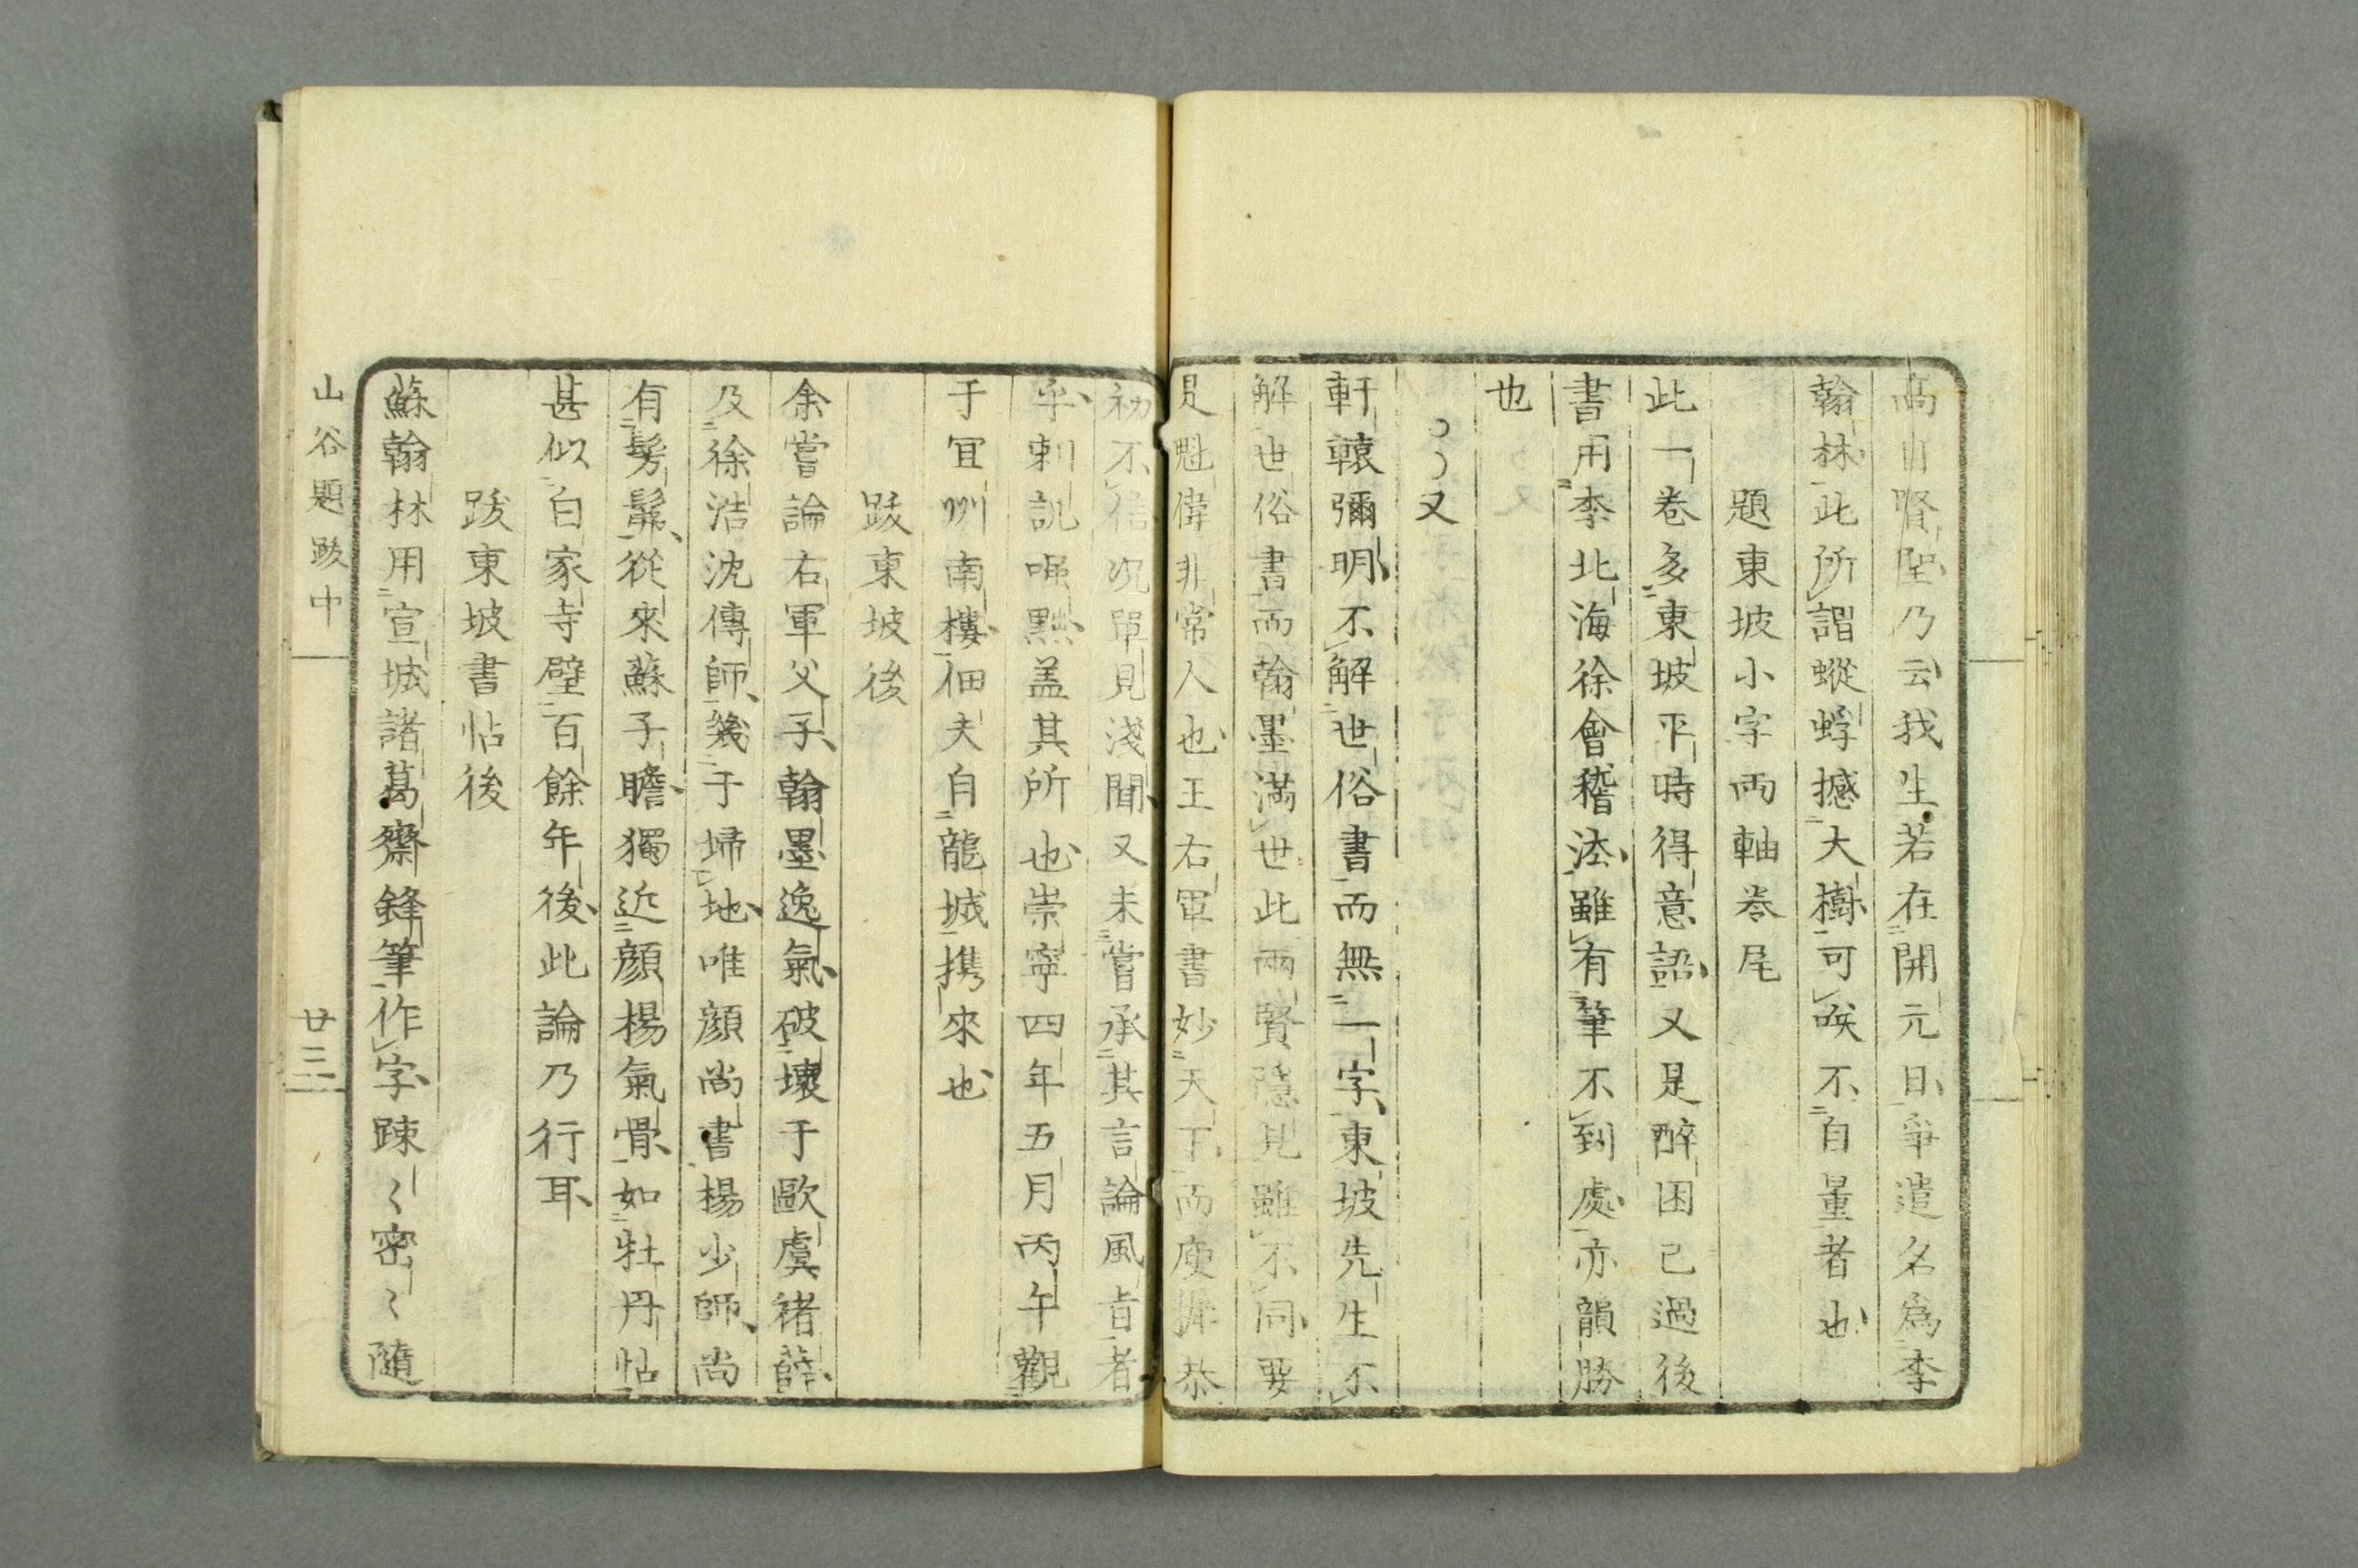 高山賢聖乃云我生若在開元日爭遣名為李
翰林此所謂蚍蜉撼大樹可唉不自量者也
題東坡小字両軸巻尾
此一巻多東坡平時得意語又是醉困已過後
書用李北海徐會稽法雖有筆不到處亦韻勝
也
又
軒轅彌明不解世俗書而無一字東坡先生不
解世俗書而翰墨滿世此兩賢隱見雖不同要
是魁偉非常人也王右軍書妙天下而庾穉恭
初不信况單見淺聞又未嘗承其言論風旨者
乎刺訊嗤點盖其所也崇寧四年五月丙午觀
于宜州南樓佃夫自龍城携來也
跋東坡後
余嘗論右軍父子翰墨逸氣破壞于歐虞褚薛
及徐浩沈傳師幾于埽地唯顔尚書楊少師尚
有髣髴從來蘇子瞻獨近顔楊氣骨如牡丹帖
甚似白家寺壁百餘年後此論乃行耳
跋東坡書帖後
蘇翰林用宣城諸葛齋鋒筆作字踈〻密〻隨
山谷題跋中 廿三